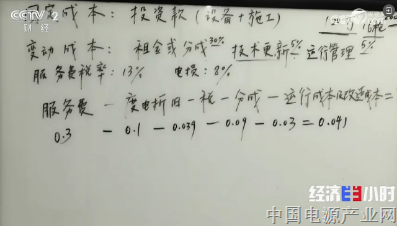 CCTV 2 财经
固定成本：投资款（设备+施工）
变动成本：租金或分成30% 技术更新5% 运行管理5%
服务费税率：13% 电损：8%
服务费－度电折旧－税－分成－运行成本及改造成本＝
0.3 － 0.1 － 0.039 － 0.09 － 0.03 ＝ 0.041
经济半小时
中国电源产业网